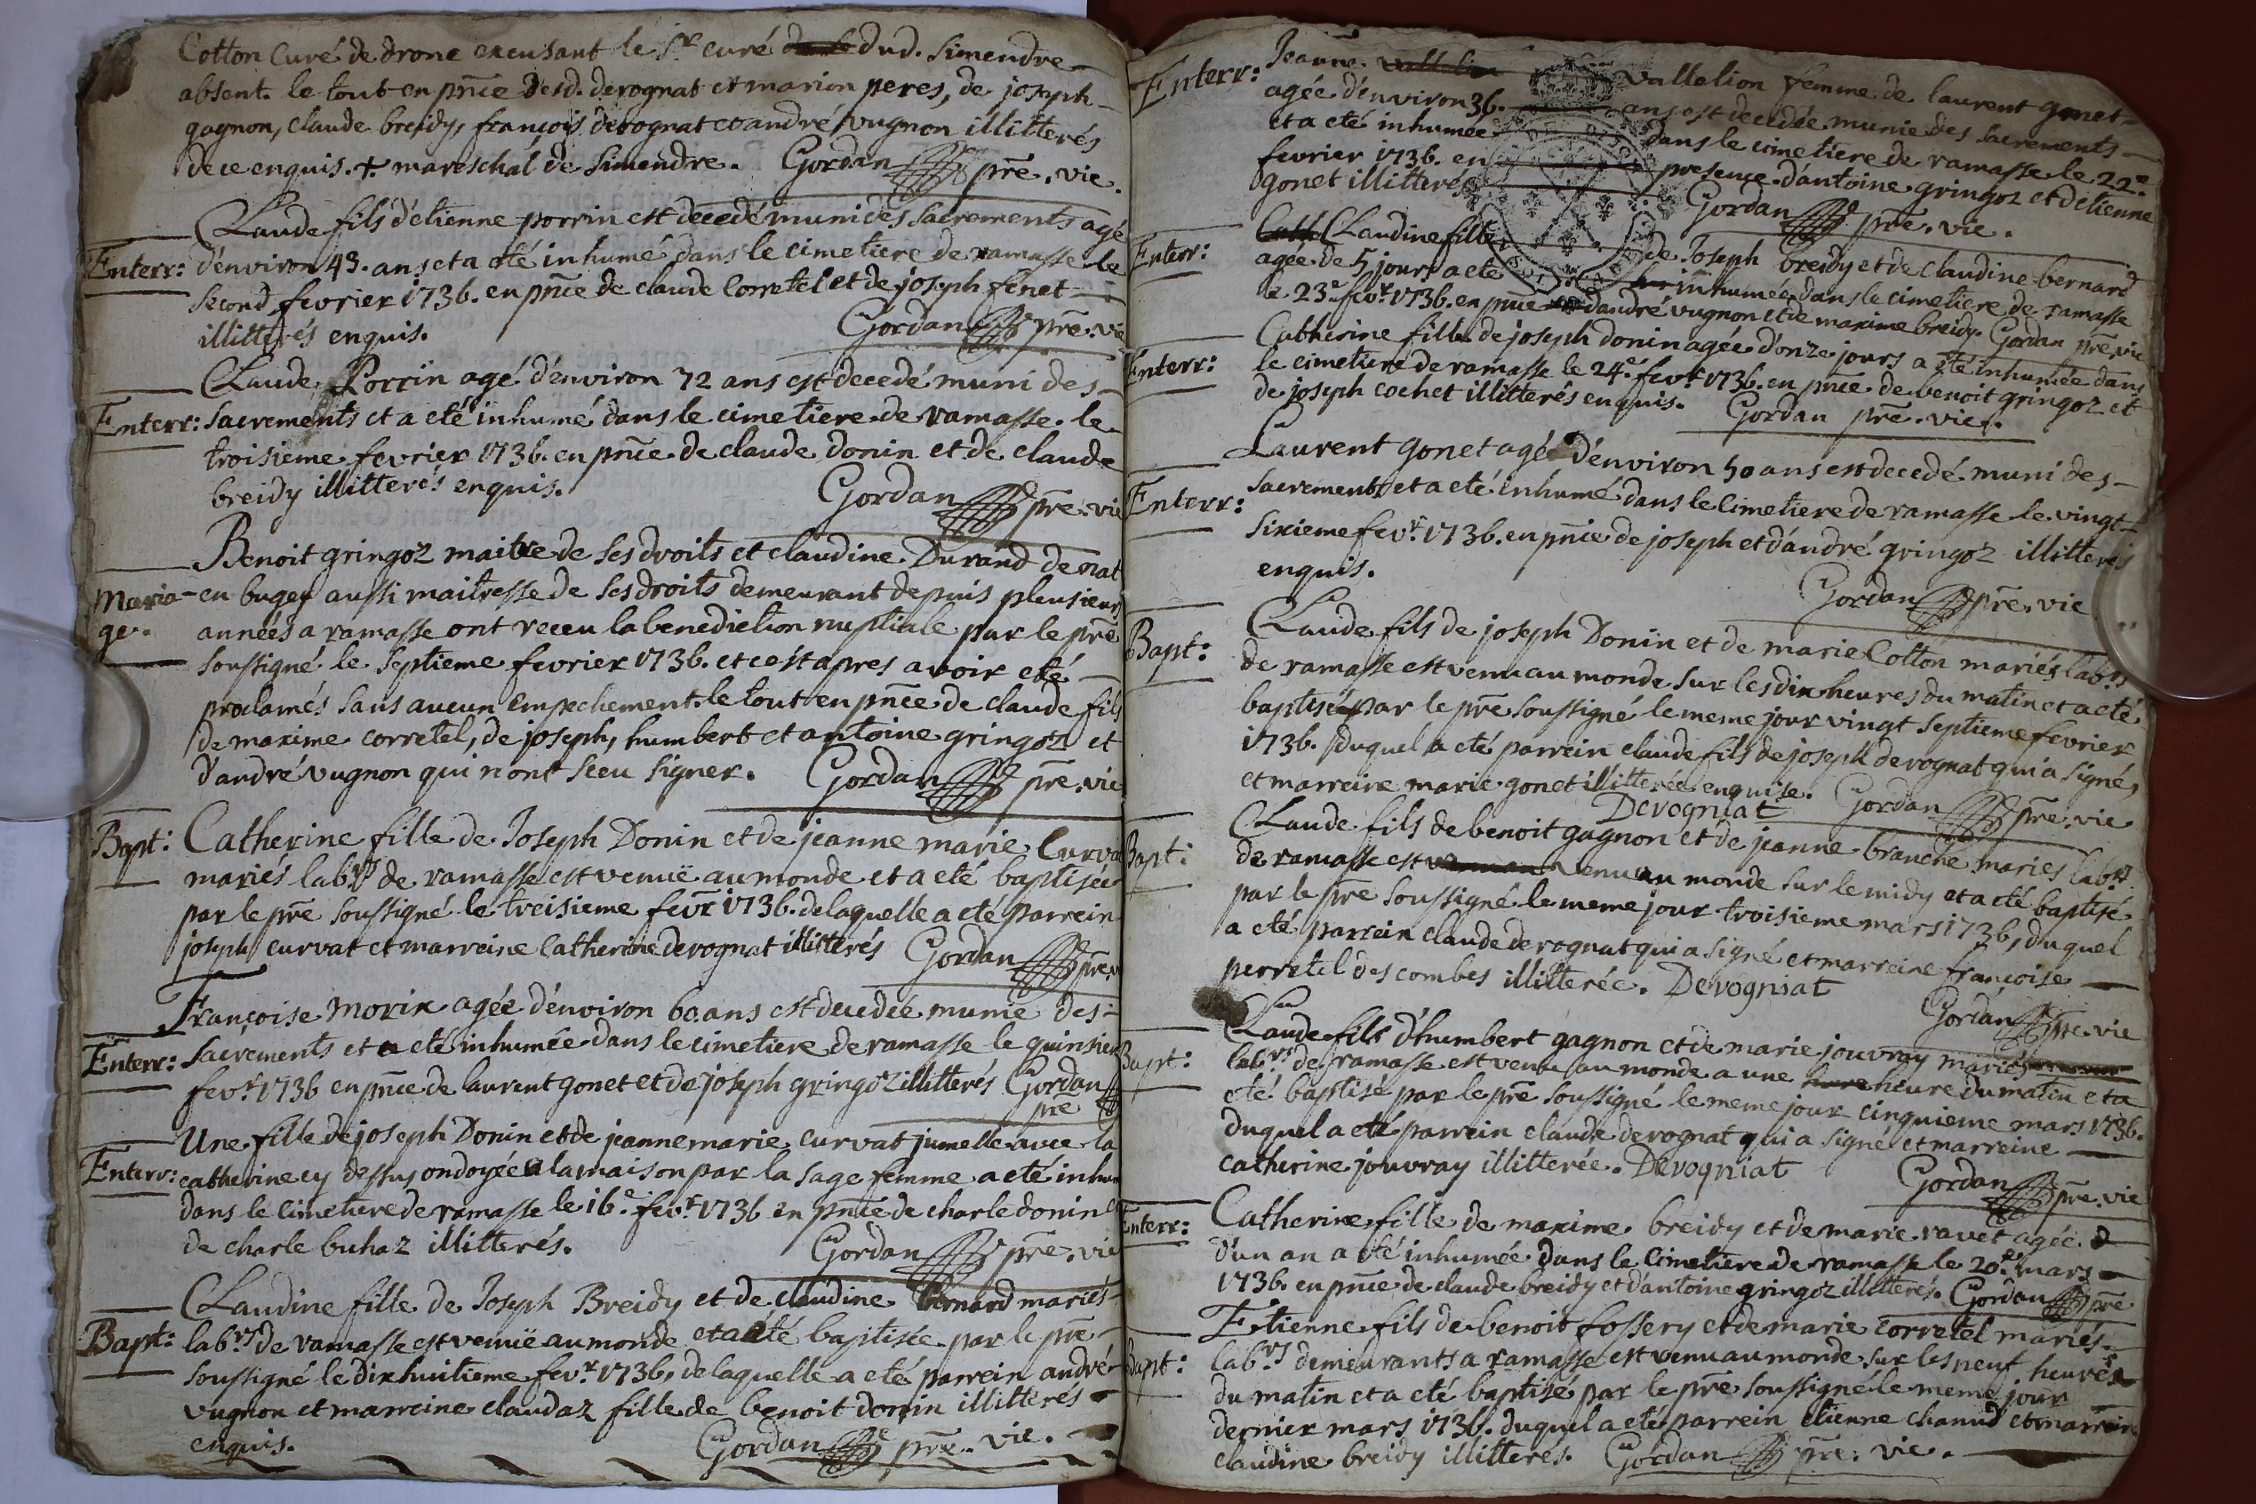 Cotton Curé de drone excusant le Sr curé dud. Simendre
absent. le tout en pnce desd. derognat et marion peres, de joseph
gagnon, claude breidy, françois derognat et andré vugnon illitterés
de ce enquis. +. mareschal de Simendre. Gordan pre. vic.
Claude fils d'etienne porrin est decedé muni des Sacrements agé
Enterr: d'environ 43. ans et a eté inhumé dans le cimetiere de ramasse le
second fevrier 1736. en pnce de claude Corretel et de joseph fenet
illitterés enquis. Gordan pre. vic
Claude Porrin agé d'environ 72 ans est decedé muni des
Enterr: Sacrements et a eté inhumé dans le cimetiere de ramasse. le
troisieme fevrier 1736. en pnce de claude donin et de claude
breidy illitterés enquis. Gordan pre. vic
Benoit gringoz maitre de ses droits et claudine Durand de
Maria- en bugey aussi maitresse de ses droits demeurant depuis plusieurs
ge. années a ramasse ont receu la benediction nuptiale par le pre
soussigné le Septieme fevrier 1736. et ce est apres avoir eté
proclamés sans aucun empechement. le tout en pnce de claude fils
de maxime corretel, de joseph, humbert et antoine gringoz et
d'andré vugnon qui n'ont sceu signer. Gordan pre. vic
Bapt: Catherine fille de Joseph Donin et de jeanne marie Curvat
mariés labrs de ramasse est venuë au monde et a eté baptisée
par le pre soussigné le treisieme fevr 1736. de laquelle a eté parrein
joseph curvat et marreine Catherine derognat illitterés Gordan pre. v
Françoise morix agée d'environ 60 ans est decedée munie des
Enterr: Sacrements et a eté inhumée dans le cimetiere de ramasse le quinsieme
fevr 1736 en pnce de laurent gonet et de joseph gringoz illitterés Gordan
pre
Une fille de joseph Donin et de jeanne marie curvat jumelle avec la
Enterr: catherine cy dessus ondoyée a la maison par la sage femme a eté inhum
dans le cimetiere de ramasse le 16e fevr 1736 en pnce de charle donin
de charle buhaz illitterés. Gordan pre. vic
Claudine fille de Joseph Breidy et de claudine Bernard mariés
Bapt: labrs de ramasse est venuë au monde et a eté baptisée par le pre
soussigné le dix huitieme fevr 1736, de laquelle a eté parrein andré
vugnon et marreine claudaz fille de benoit donin illitterés
enquis. Gordan pre. vic.
Enterr: Jeanne Vallelion femme de laurent gonet
agée d'environ 36. ans est decedée munie des sacrements
et a eté inhumée dans le cimetiere de ramasse le 22e
fevrier 1736. en presence d'antoine gringoz et d'etienne
gonet illitterés Gordan pre. vic.
Enterr: Claudine fille de Joseph breidy et de claudine bernard
agée de 5 jours a eté inhumée dans le cimetiere de ramasse
le 23e fevr 1736. en pnce d'andré vugnon et de maxime breidy. Gordan pre. vic
Catherine fille de joseph donin agée d'onze jours a eté inhumée dans
Enterr: le cimetiere de ramasse le 24e fevr 1736. en pnce de benoit gringoz et
de joseph cochet illitterés enquis. Gordan pre. vic.
Laurent gonet agé d'environ 50 ans est decedé muni des
Enterr: sacrements et a eté inhumé dans le Cimetiere de ramasse le vingt
sixieme fevr 1736. en pnce de joseph et d'andré gringoz illitterés
enquis. Gordan pre. vic
Claude fils de joseph Donin et de marie Cotton mariés labrs
Bapt: de ramasse est venu au monde sur les dix heures du matin et a eté
baptisé par le pre soussigné le meme jour vingt septieme fevrier
1736. duquel a eté parrein claude fils de joseph derognat qui a signé,
et marreine marie gonet illitterée enquise. Gordan pre. vic
Derogniat
Claude fils de benoit gagnon et de jeanne branche mariés labrs
Bapt: de ramasse est venu au monde sur le midy et a eté baptisé
par le pre soussigné le meme jour troisieme mars 1736, duquel
a eté parrein claude derognat qui a signé et marreine françoise
perretel des combes illitterée. Derogniat
Gordan pre. vic
Claude fils d'humbert gagnon et de marie jouvray mariés
Bapt: labrs de ramasse est venu au monde a une heure du matin et a
eté baptisé par le pre soussigné le meme jour cinquieme mars 1736.
duquel a eté parrein claude derognat qui a signé et marreine
catherine jouvray illitterée. Derogniat Gordan pre. vic
Enterr: Catherine fille de maxime breidy et de marie ravet agée
d'un an a eté inhumée dans le Cimetiere de ramasse le 20e mars
1736. en pnce de claude breidy et d'antoine gringoz illitterés. Gordan pre
Etienne fils de benoit fossery et de marie corretel mariés
Bapt: labrs demeurants a ramasse est venu au monde sur les neuf heures
du matin et a eté baptisé par le pre soussigné le meme jour
dernier mars 1736. duquel a eté parrein etienne chanud et marreine
claudine breidy illitterés. Gordan pre. vic.